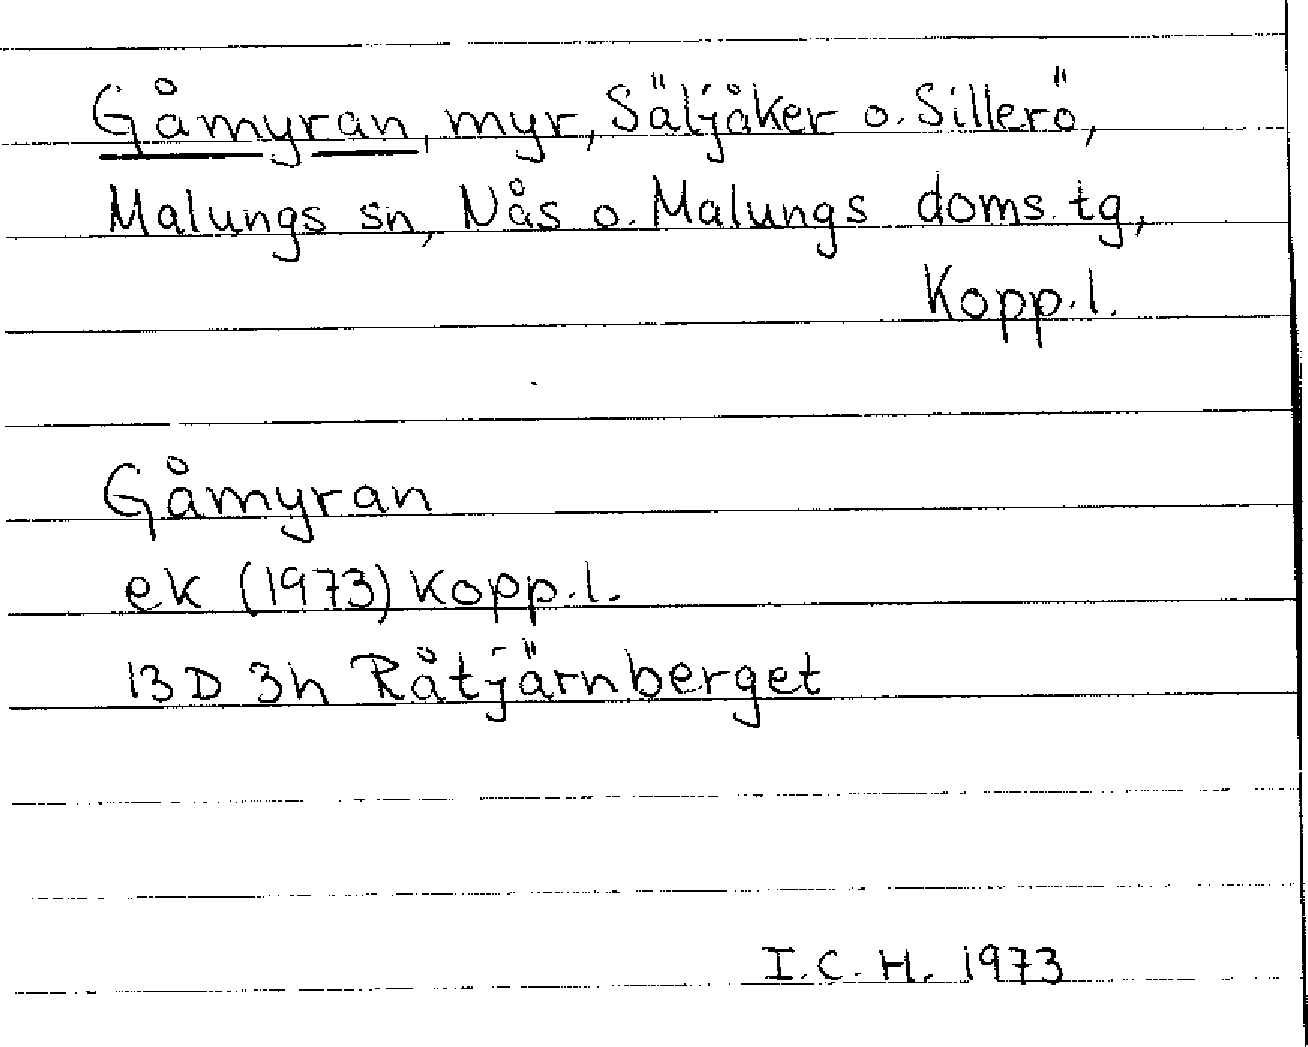 Gåmyran, myr, Säljåker o. Sillerö,
Malungs sn, Nås o. Malungs doms. tg,
Kopp. l.
Gåmyran
ek (1973) Kopp. l.
13 D 3h Råtjärnberget
I. C. H. 1973